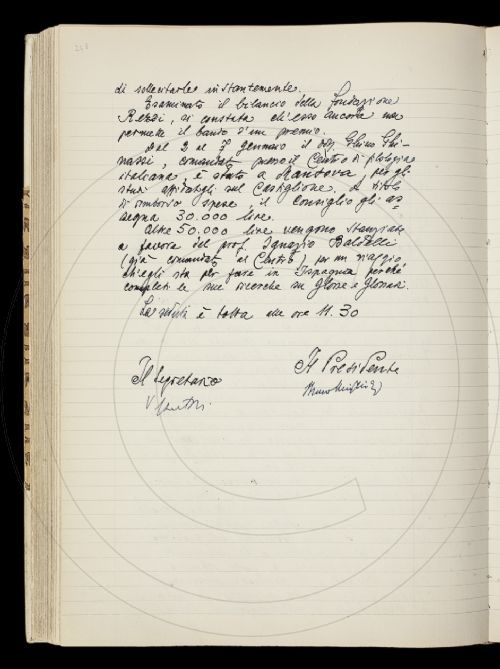 di sollecitarle instantemente.
Esaminato il bilancio della Fondazione
Rezzi, si constata ch'esso ancora non
permette il bando d'un premio.
Dal 2 al 7 gennaio il dott. Ghino Ghi-
nassi, comandato presso il Centro di filologia
italiana, è stato a Mantova, per gli
studi affidatigli sul Castiglione. A titolo
di rimborso spese, il Consiglio gli as-
segna 30.000 lire.
Altre 50.000 lire vengono stanziate
a favore del prof. Ignazio Baldelli
(già comandato al Centro) per un viaggio
ch'egli sta per fare in Ispagna perché
completi le sue ricerche su glosse e glossari.
La seduta è tolta alle ore 11.30
Il Segretario
Il Presidente